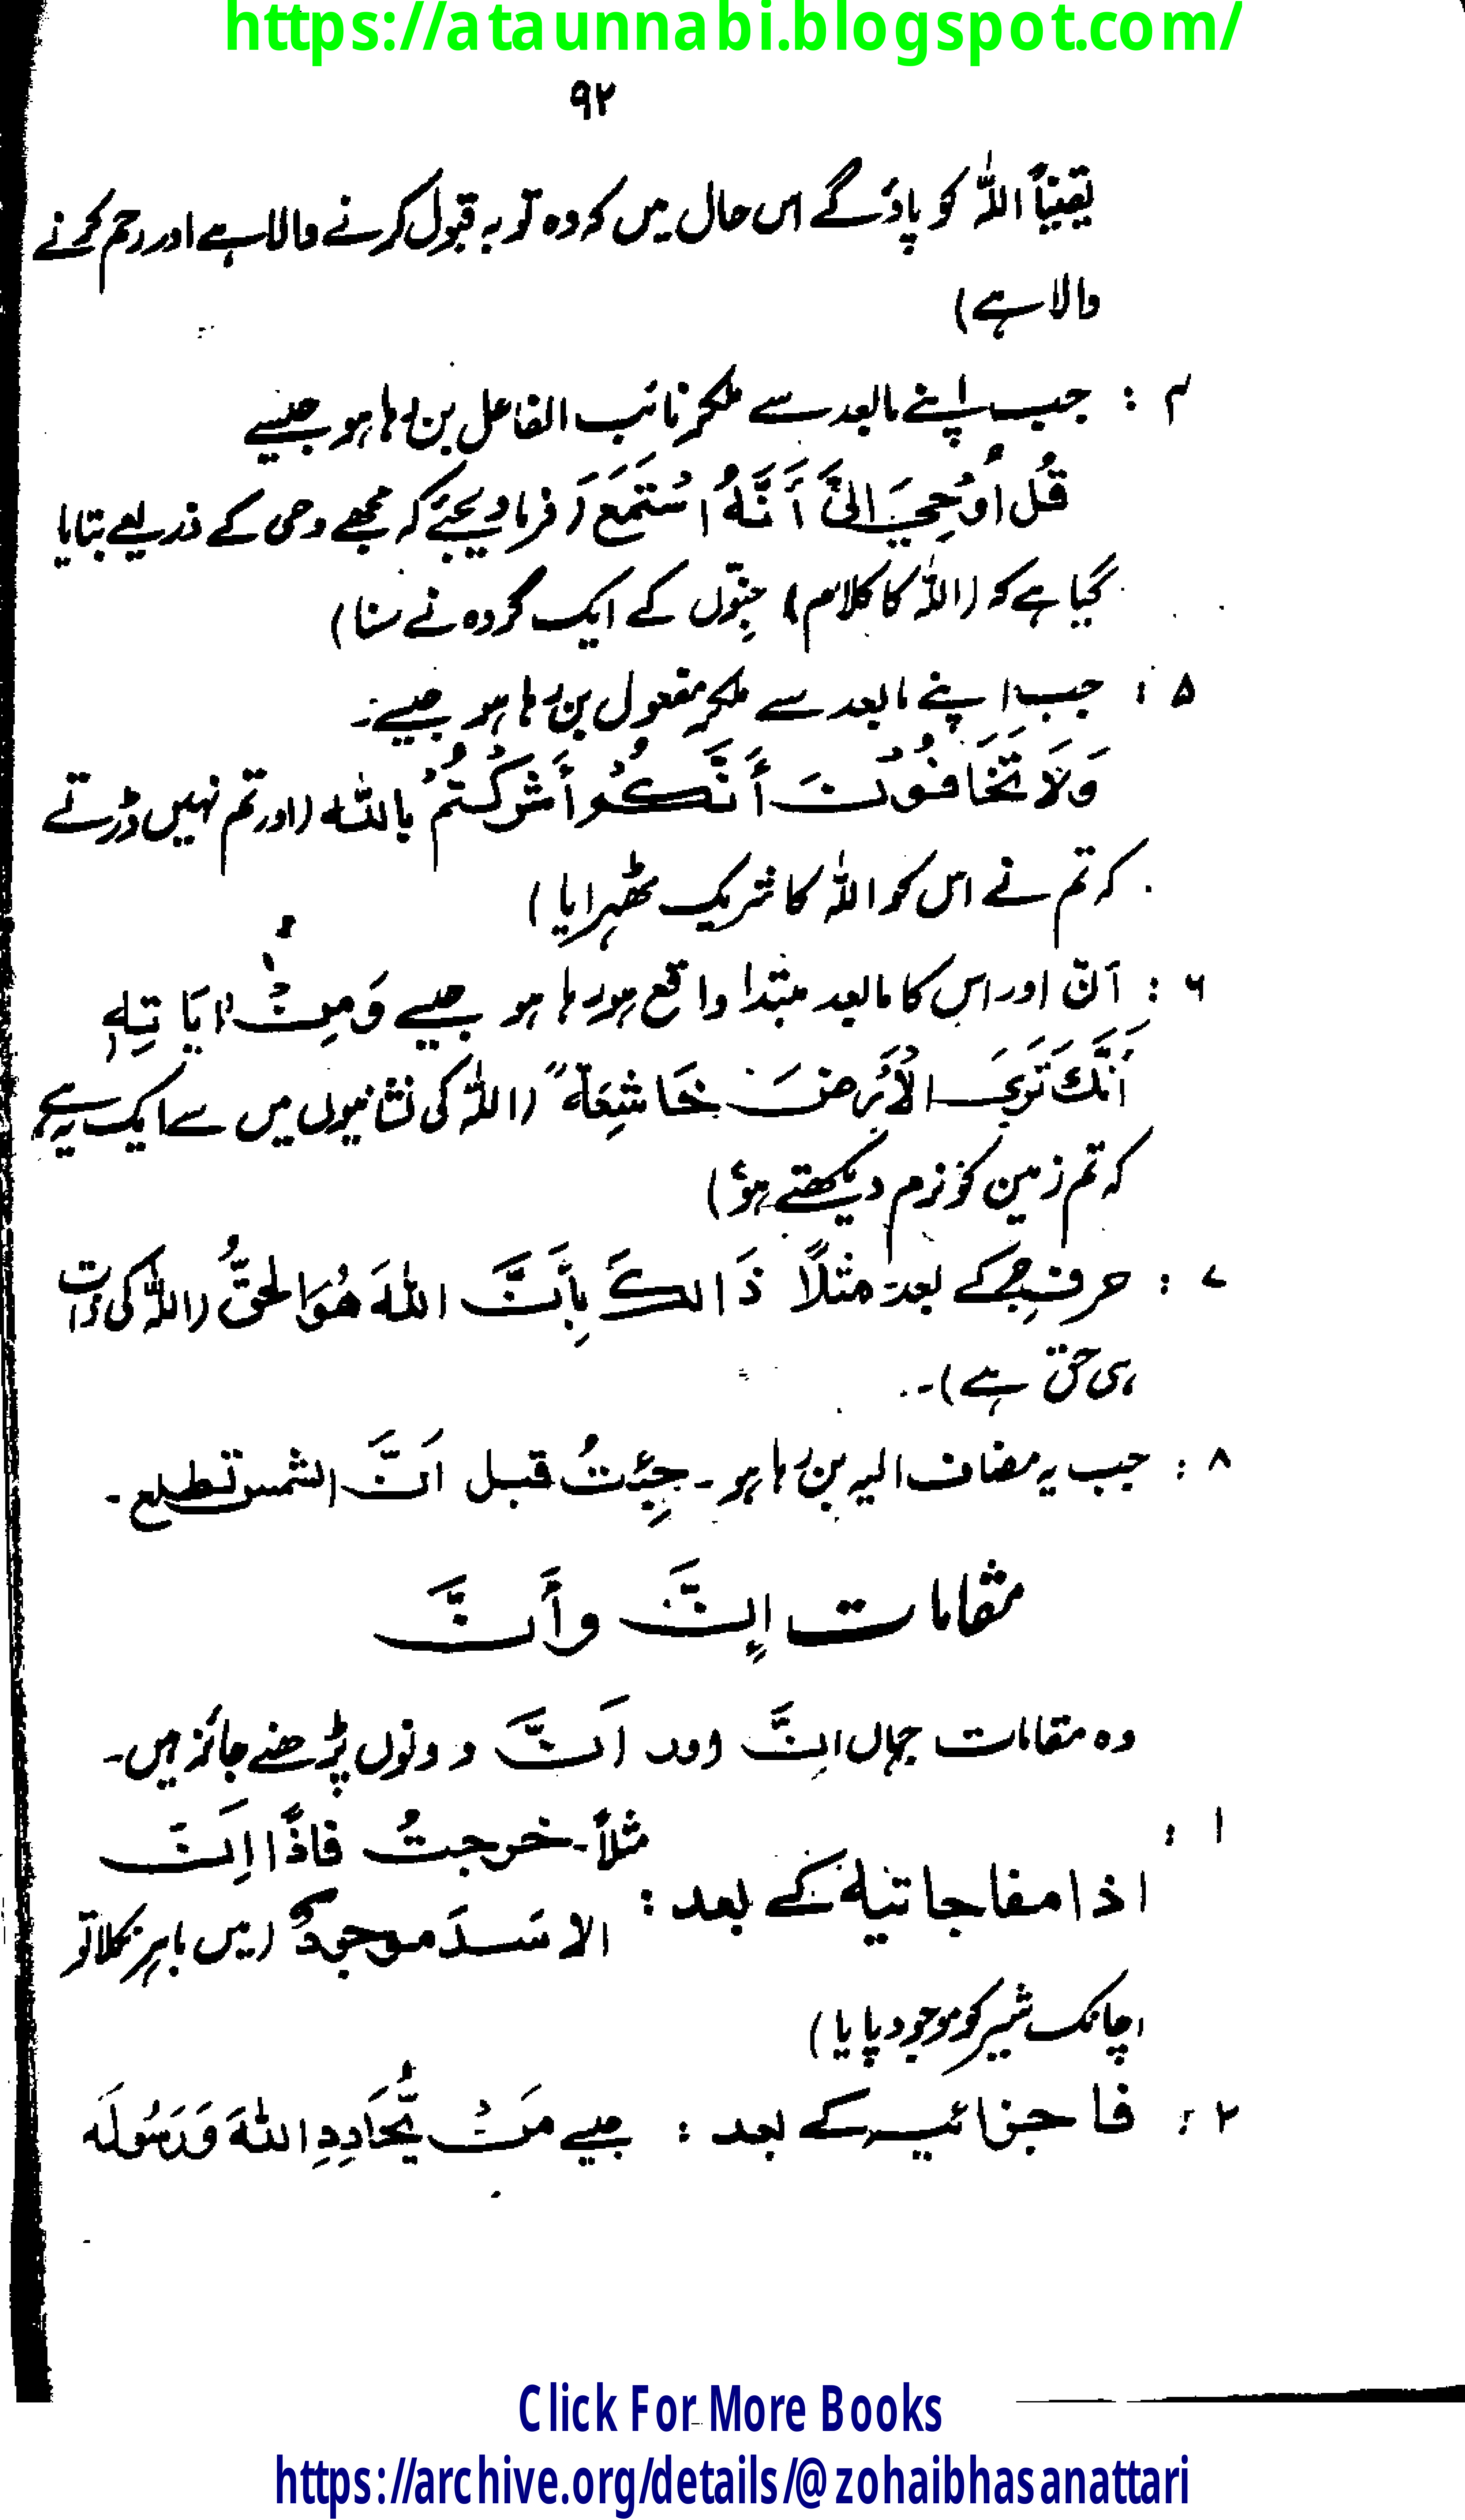 https://ataunnabi.blogspot.com/
۹۲
یقیناً اللہ کو پاؤگے اس حال میں کہ وہ توبہ قبول کرنے والا ہے اور رحم کرنے
والا ہے)
۴ : جب اپنے مابعد سے ملکر نائب الفاعل بن رہا ہو جیسے
قُل اُوْحِیَ اِلَیَّ أَنَّهُ اسْتَمَعَ (فرما دیجئے کہ مجھے وحی کے ذریعے بتایا
گیا ہے کہ (اللہ کا کلام) جنّوں کے ایک گروہ نے سنا)
۵ : جب اپنے مابعد سے ملکر مفعول بن رہا ہو جیسے :۔
وَلَا تَخَافُوْنَ أَنَّكُمْ أَشْرَكْتُمْ بِاللّٰه (اور تم نہیں ڈرتے
کہ تم نے اس کو اللہ کا شریک ٹھہرایا)
۶ : اَنّ اور اس کا مابعد مبتدا واقع ہو رہا ہو جیسے وَمِنْ اٰیَاتِهٖ
اَنَّكَ تَرَی الْاَرْضَ خَاشِعَةً (اللہ کی نشانیوں میں سے ایک یہ ہے
کہ تم زمین کو نرم دیکھتے ہو)
۷ : حرف جر کے بعد مثلاً ذَالِكَ بِأَنَّ اللّٰهَ هُوَ الْحَقُّ (اللہ کی ذات
ہی حق ہے)۔
۸ : جب یہ مضاف الیہ بن رہا ہو۔ جِئْتُ قبل اَنَّ الشمس تطلع۔
مقامات اِنَّ وأَنَّ
وہ مقامات جہاں اِنَّ اور اَنَّ دونوں پڑھنے جائز ہیں۔
۱ : اذا مفاجاتیہ کے بعد : مثلاً۔ خرجتُ فاذًا اِنَّ
الاسَدَ موجودٌ (میں باہر نکلا تو
اچانک شیر کو موجود پایا)
۲ : فا جزائیہ کے بعد : جیسے مَنْ یُّحَادِدِ اللّٰهَ وَرَسُولَه
Click For More Books
https://archive.org/details/@zohaibhasanattari